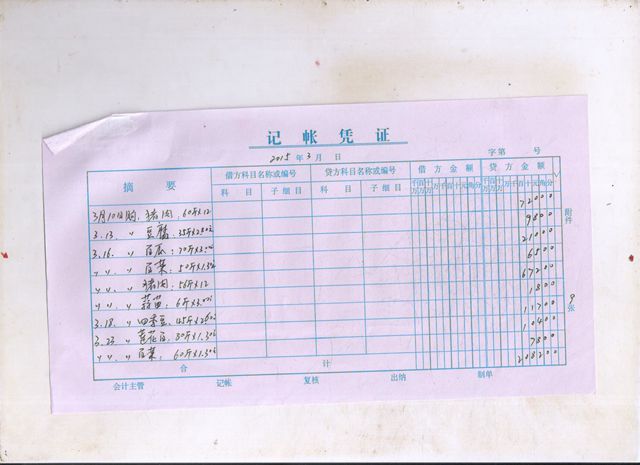 记帐凭证
2015年3月 日
字第 号
摘要 借方科目名称或编号 贷方科目名称或编号 借方金额 贷方金额
科目 子细目 科目 子细目 千百十万千百十元角分 千百十万千百十元角分
3月10日购 猪肉:60斤×12 72000
3.13. 〃 豆腐:35斤×2.80元 9800
3.16. 〃 瓜:70斤×3.00元 21000
〃 〃. 〃 白菜:50斤×1.30元 6500
〃 〃. 〃 猪肉:56斤×12 67200
〃 〃. 〃 蒜苗:6斤×3.00元 1800
3.18. 〃 四季豆:45斤×2.60元 11700
3.23. 〃 莲花白:80斤×1.30元 10400
〃 〃. 〃 白菜:60斤×1.30元 7800
合计 208200
附件 9 张
会计主管 记帐 复核 出纳 制单